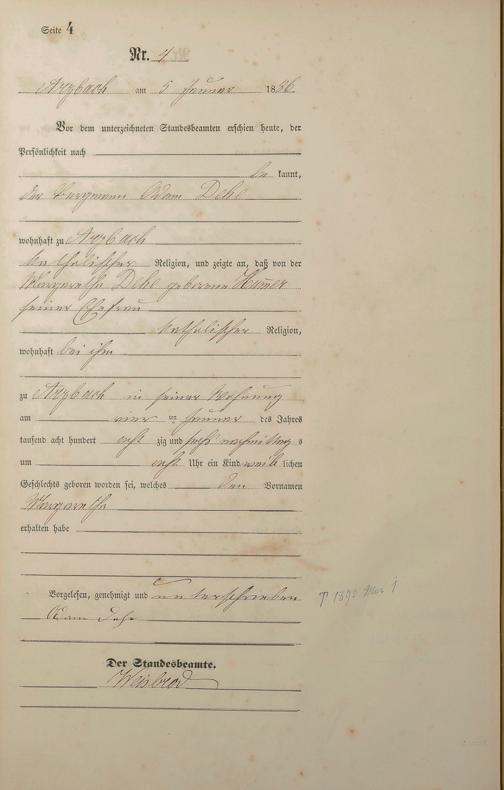 Seite 4
Nr. 4
Arzbach am 5 Januar 1886
Vor dem unterzeichneten Standesbeamten erschien heute, der
Persönlichkeit nach
be kannt,
der Bergmann Adam Dehe
wohnhaft zu Arzbach
katholischer Religion, und zeigte an, daß von der
Margaretha Dehe geborene
seiner Ehefrau
katholischer Religion,
wohnhaft bei ihm
zu Arzbach in seiner Wohnung
am vier ten Januar des Jahres
tausend acht hundert acht zig und sechs nachmittag s
um acht Uhr ein Kind weib lichen
Geschlechts geboren worden sei, welches den Vornamen
Margaretha
erhalten habe
Vorgelesen, genehmigt und unterschrieben
Adam Dehe
Der Standesbeamte.
Weisbrod
† 1890